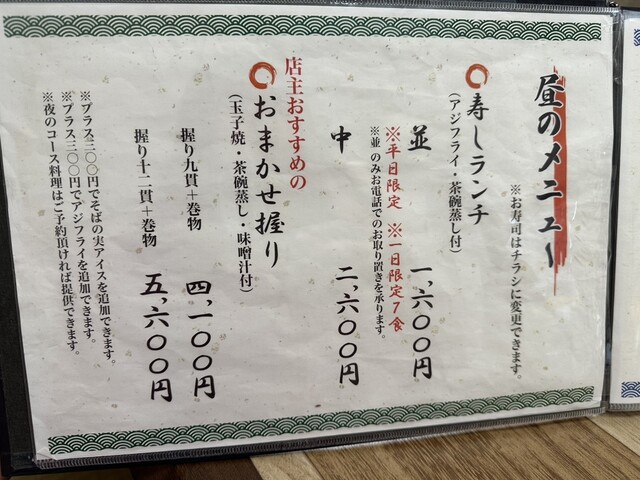 昼のメニュー
※お寿司はチラシに変更できます。
寿しランチ
(アジフライ・茶碗蒸し付)
並 一、六〇〇円
※平日限定 ※一日限定7食
※並 のみお電話でのお取り置きを承ります。
中 二、六〇〇円
店主おすすめの
おまかせ握り
(玉子焼・茶碗蒸し・味噌汁付)
握り九貫+巻物 四、一〇〇円
握り十二貫+巻物 五、六〇〇円
※プラス三〇〇円でそばの実アイスを追加できます。
※プラス三〇〇円でアジフライを追加できます。
※夜のコース料理はご予約頂ければ提供できます。